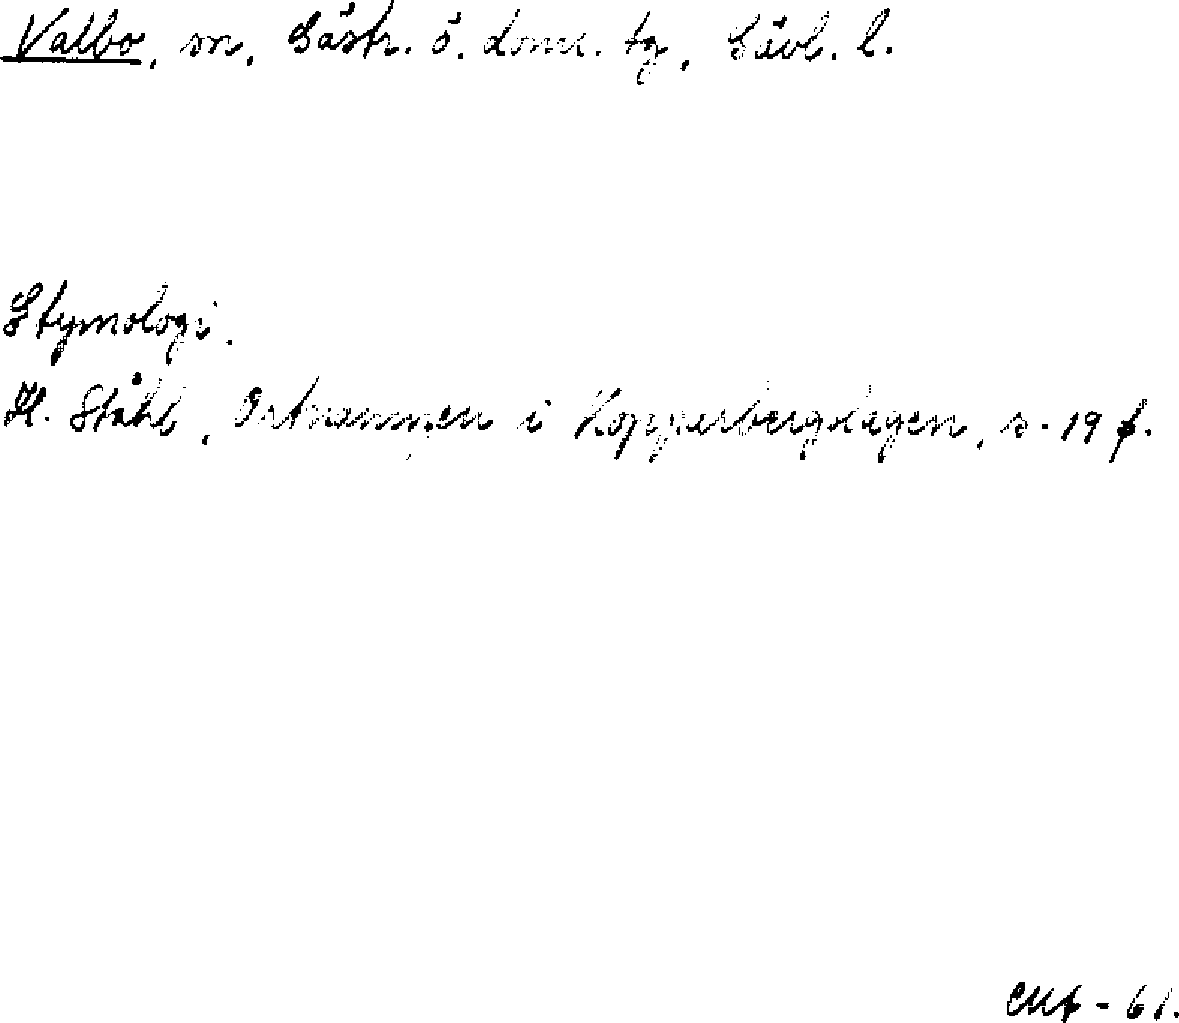 Valbo, sn, Gästr. ö. doms. tg, Gävl. l.
Etymologi.
H. Ståhl, Ortnamnen i Kopparbergslagen, s. 19 f.
- 61.